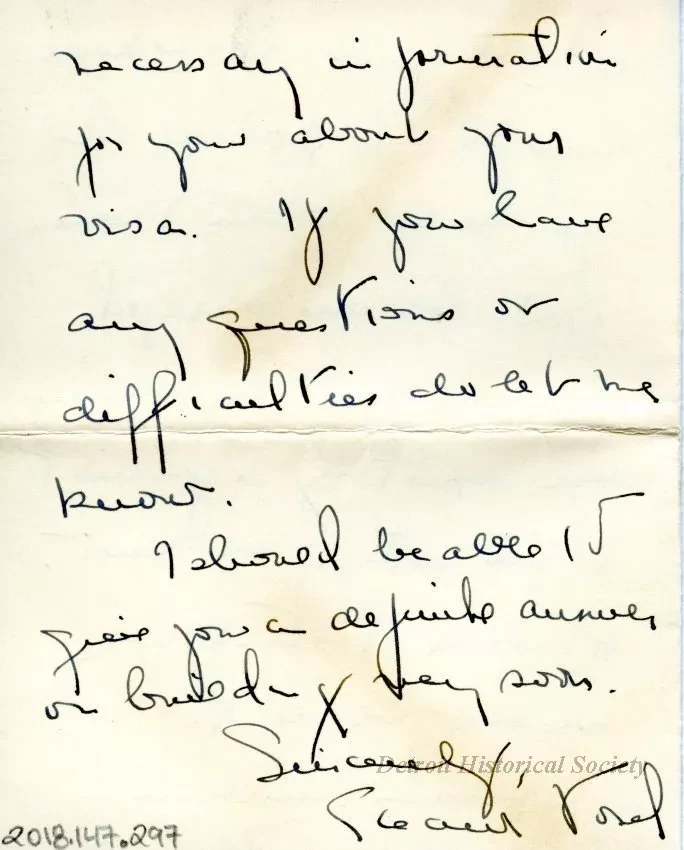 necessary information
for your about your
visa. If you have
any questions or
difficulties do let me
know.
I should be able to
give you a definite answer
on building very soon.
Sincerely,
Detroit Historical Society
2018.147.297